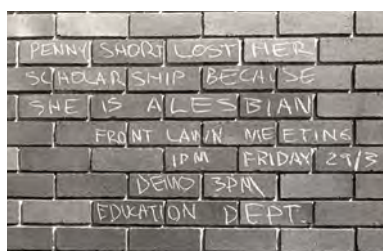 PENNY SHORT LOST HER
SCHOLARSHIP BECAUSE
SHE IS A LESBIAN
FRONT LAWN MEETING
1PM FRIDAY 29/3
DEMO 3PM
EDUCATION DEPT.